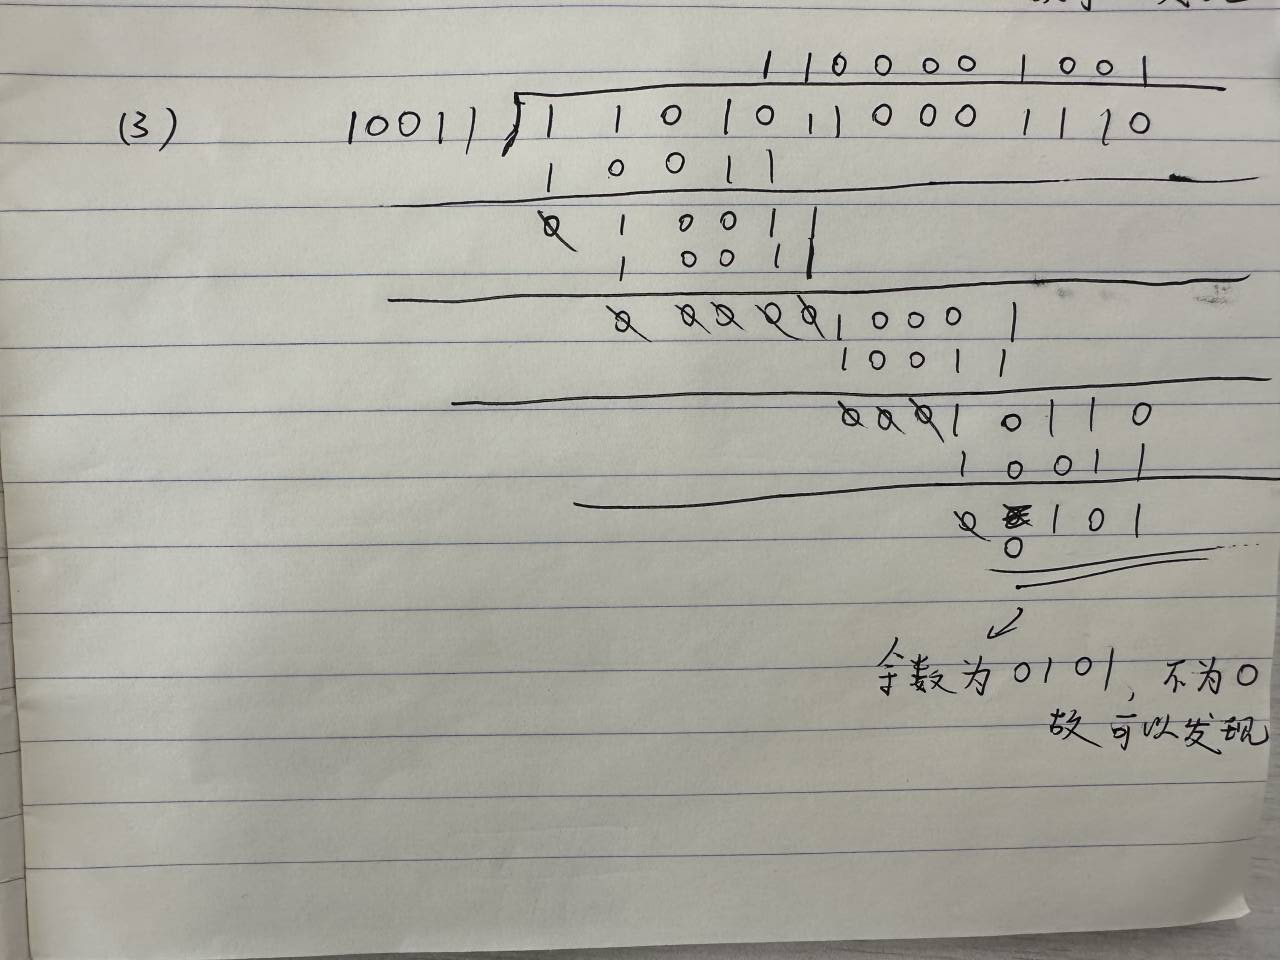 1 1 0 0 0 0 1 0 0 1
(3) 10011 1 1 0 1 0 1 1 0 0 0 1 1 1 0
1 0 0 1 1
0 1 0 0 1 1
1 0 0 1 1
0 0 0 0 0 1 0 0 0 1
1 0 0 1 1
0 0 0 1 0 1 1 0
1 0 0 1 1
0 1 0 1
0
余数为0101,不为0
故可以发现